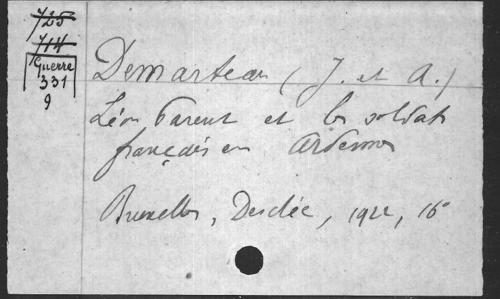 725
714
Guerre
331
9
Demarteau (J. et A.)
Léon Parent et les soldats
français en Ardennes
Bruxelles, Desclée, 1922, 16°